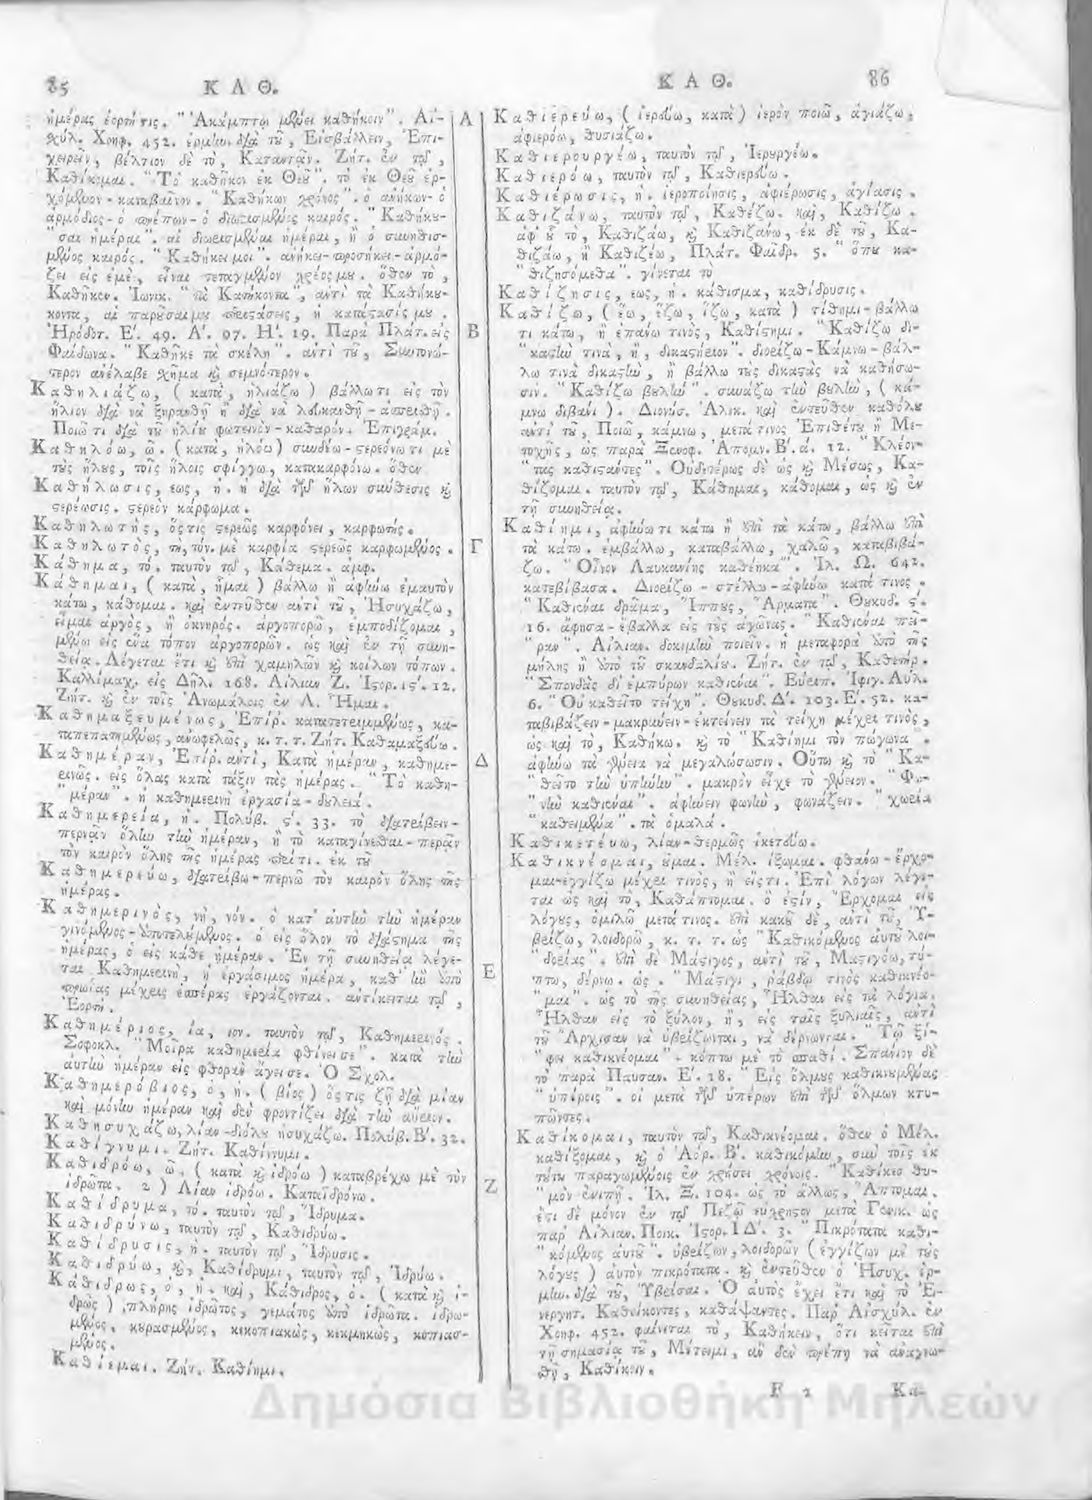 85 ΚΑΘ.
ἡμέρας ἑορτή τις. "Ἀκάμπτῳ μένει καθήκοιν". Αἰ-
σχύλ. Χοηφ. 452. ἑρμλω. διὰ τοῦ, Εἰσβάλλειν, Ἐπι-
χειρεῖν, βέλτιον δὲ τὸ, Καταντᾷν. Ζήτ. ἐν τῷ,
Καθίκομαι. "Τὸ καθῆκον ἐκ Θεοῦ". τὸ ἐκ Θεοῦ ἐρ-
χόμενον - καταβαῖνον. "Καθήκων χρόνος". ὁ ἀνήκων - ὁ
ἁρμόδιος - ὁ πρέπων - ὁ διωρισμένος καιρός. "Καθήκου-
"σαι ἡμέραι". αἱ διωρισμέναι ἡμέραι, ἢ ὁ συνηθισ-
μένος καιρός. "Καθήκει μοι". ἀνήκει - προσήκει - ἁρμό-
ζει εἰς ἐμὲ, εἶναι τεταγμένον χρέος μου. ὅθεν τὸ,
Καθῆκον. Ἰωνικ. "τὰ Κατήκοντα", ἀντὶ τὰ Καθήκο-
κοντα, αἱ παροῦσαι μου περιστάσεις, ἡ κατάστασίς μου.
Ἡρόδοτ. Ε'. 49. Α'. 97. Η'. 19. Παρὰ Πλάτ. εἰς
Φαίδωνα. "Καθῆκε τὰ σκέλη". ἀντὶ τοῦ, Σωτονώ-
τερον ἀνέλαβε σχῆμα καὶ σεμνότερον.
Καθηλιάζω, (κατὰ, ἡλιάζω) βάλλω τι εἰς τὸν
ἥλιον διὰ νὰ ξηρανθῇ ἢ διὰ νὰ λευκανθῇ - ἀσπρισθῇ.
Ποιῶ τι διὰ τοῦ ἡλίου φωτεινὸν - καθαρόν. Ἐπιγραμ.
Καθηλόω, ῶ. (κατὰ, ἡλόω) συνδένω - στερεόνω τι μὲ
τοὺς ἥλους, τοῖς ἥλοις σφίγγω, κατακαρφόνω. ὅθεν
Καθήλωσις, εως, ἡ. ἡ διὰ τῶν ἥλων σύνθεσις καὶ
στερέωσις. στερεὸν κάρφωμα.
Καθηλωτὴς, ὅς τις στερεῶς καρφόνει, καρφωτής.
Καθηλωτὸς, τὴ, τόν. μὲ καρφία στερεῶς καρφωμένος.
Κάθημα, τό. ταυτὸν τῷ, Κάθεμα. ἀμφ.
Κάθημαι, (κατὰ, ἧμαι) βάλλω ἢ ἀφίνω ἐμαυτὸν
κάτω, κάθομαι. καὶ ἐντεῦθεν ἀντὶ τοῦ, Ἡσυχάζω,
εἶμαι ἀργὸς, ἢ ὀκνηρός. ἀργοπορῶ, ἐμποδίζομαι,
μένω εἰς ἕνα τόπον ἀργοπορῶν. ὡς καὶ ἐν τῇ συνη-
θείᾳ. Λέγεται ἔτι καὶ ἐπὶ χαμηλῶν καὶ κοίλων τόπων.
Καλλίμαχ. εἰς Δῆλ. 168. Αἰλιαν. Ζ. Ἱστορ. ις'. 12.
Ζήτ. καὶ ἐν τοῖς Ἀνωμάλοις ἐν Λ. Ἧμαι.
Καθημαξευμένως, Ἐπίρ. κατατετριμμένως, κα-
ταπεπατημένως, ἀνωφελῶς, κ. τ. τ. Ζήτ. Καθαμαξεύω.
Καθημέραν, Ἐπίρ. ἀντὶ, Κατὰ ἡμέραν, καθημε-
ρινῶς. εἰς ὅλας κατὰ τάξιν τὰς ἡμέρας. "Τὸ καθη-
"μέραν". ἡ καθημερινὴ ἐργασία - δουλειά.
Καθημερεία, ἡ. Πολύβ. ς'. 33. τὸ διατρίβειν -
περνᾷν ὅλην τὴν ἡμέραν, ἢ τὸ καταγίνεσθαι - περᾷν
τὸν καιρὸν ὅλης τῆς ἡμέρας περίτι. ἐκ τοῦ
Καθημερεύω, διατρίβω - περνῶ τὸν καιρὸν ὅλης τῆς
ἡμέρας.
Καθημερινὸς, νὴ, νόν. ὁ κατ' αὐτὴν τὴν ἡμέραν
γινόμενος - ἀποτελούμενος. ὁ εἰς ὅλον τὸ διάστημα τῆς
ἡμέρας, ὁ εἰς κάθε ἡμέραν. Ἐν τῇ συνηθείᾳ λέγε-
ται Καθημερινὴ, ἡ ἐργάσιμος ἡμέρα, καθ' ἣν ἀπὸ
πρωίας μέχρις ἑσπέρας ἐργάζονται. ἀντίκειται τῷ,
Ἑορτή.
Καθημέριος, ία, ιον. ταυτὸν τῷ, Καθημερινός.
Σοφοκλ. "Μοῖρα καθημερία φθίνει σε". κατὰ τὴν
αὐτὴν ἡμέραν εἰς φθορὰν ἄγει σε. Ὁ Σχολ.
Καθημερόβιος, ὁ, ἡ. (βίος) ὅς τις ζῇ διὰ μίαν
καὶ μόνην ἡμέραν καὶ δὲν φροντίζει διὰ τὴν αὔριον.
Καθησυχάζω, λίαν - διόλου ἡσυχάζω. Πολύβ. Β'. 32.
Καθίγνυμι. Ζήτ. Καθίννυμι.
Καθιδρόω, ῶ. (κατὰ καὶ ἱδρόω) καταβρέχω μὲ τὸν
ἱδρῶτα. 2) Λίαν ἱδρόω. Καταϊδρόνω.
Καθίδρυμα, τό. ταυτὸν τῷ, Ἵδρυμα.
Καθιδρύνω, ταυτὸν τῷ, Καθιδρύω.
Καθίδρυσις, ἡ. ταυτὸν τῷ, Ἵδρυσις.
Καθιδρύω, καὶ, Καθίδρυμι, ταυτὸν τῷ, Ἱδρύω.
Κάθιδρως, ὁ, ἡ. καὶ, Κάθιδρος, ὁ. (κατὰ καὶ ἱ-
δρὼς) πλήρης ἱδρῶτος, γεμάτος ἀπὸ ἱδρῶτα. ἱδρω-
μένος. κουρασμένος, κικοπιακὼς, κεκμηκὼς, κοπιασ-
μένος.
Καθίεμαι. Ζήτ. Καθίημι.
Α
Β
Γ
Δ
Ε
Ζ
ΚΑΘ. 86
Καθιερεύω, (ἱερεύω, κατὰ) ἱερὸν ποιῶ, ἁγιάζω,
ἀφιερόω, θυσιάζω.
Καθιερουργέω, ταυτὸν τῷ, Ἱερουργέω.
Καθιερόω, ταυτὸν τῷ, Καθιερεύω.
Καθιέρωσις, ἡ. ἱεροποίησις, ἀφιέρωσις, ἁγίασις.
Καθιζάνω, ταυτὸν τῷ, Καθέζω. καὶ, Καθίζω.
ἀφ' οὗ τὸ, Καθιζάω, καὶ Καθιζάνω, ἐκ δὲ τοῦ, Κα-
θιζάω, ἢ Καθιζέω, Πλάτ. Φαίδρ. 5. "ὅπου κα-
"θιζησόμεθα". γίνεται τὸ
Καθίζησις, εως, ἡ. κάθισμα, καθίδρυσις.
Καθίζω, (ἕω, ἕζω, ἵζω, κατὰ) τίθημι - βάλλω
τι κάτω, ἢ ἐπάνω τινὸς, Καθίστημι. "Καθίζω δι-
"καστὴν τινὰ, ἢ, δικαστήριον". διορίζω - Κάμνω - βάλ-
λω τινὰ δικαστὴν, ἢ βάλλω τοὺς δικαστὰς νὰ καθήσω-
σιν. "Καθίζω βουλήν". συνάζω τὴν βουλὴν, (κά-
μνω διβάνι). Διονύσ. Ἁλικ. καὶ ἐντεῦθεν καθόλου
ἀντὶ τοῦ, Ποιῶ, κάμνω, μετά τινος Ἐπιθέτου ἢ Με-
τοχῆς, ὡς παρὰ Ξενοφ. Ἀπομν. Β'. ά. 12. "Κλέον-
"τας καθίσαντες". Οὐδετέρως δὲ ὡς καὶ Μέσως, Κα-
θίζομαι. ταυτὸν τῷ, Κάθημαι, κάθομαι, ὡς καὶ ἐν
τῇ συνηθείᾳ.
Καθίημι, ἀφίνω τι κάτω ἢ ἐπὶ τὰ κάτω, βάλλω ἐπὶ
τὰ κάτω. ἐμβάλλω, καταβάλλω, χαλῶ, καταβιβά-
ζω. "Οἶνον Λαυκανίης καθέηκα". Ἰλ. Ω. 642.
κατεβίβασα. Διορίζω - στέλλω - ἀφίνω κατά τινος.
"Καθιέναι δρᾶμα, Ἵππους, Ἅρματα". Θουκυδ. ς'.
16. ἄφησα - ἔβαλλα εἰς τοὺς ἀγῶνας. "Καθιέναι πεῖ-
"ραν". Αἰλιαν. δοκιμὴν ποιεῖν. ἡ μεταφορὰ ἀπὸ τῆς
μήλης ἢ ἀπὸ τοῦ σκανδαλίου. Ζήτ. ἐν τῷ, Καθετήρ.
"Σπονδὰς δι' ἐμπύρων καθιέναι". Εὐριπ. Ἰφιγ. Αὐλ.
6. "Οὐ καθεῖτο τείχη". Θουκυδ. Δ'. 103. Ε'. 52. κα-
ταβιβάζειν - μακρύνειν - ἐκτείνειν τὰ τείχη μέχρι τινὸς,
ὡς καὶ τὸ, Καθήκω. καὶ τὸ "Καθίημι τὸν πώγωνα".
ἀφίνω τὰ γένεια νὰ μεγαλώσωσιν. Οὕτω καὶ τὸ "Κα-
"θεῖτο τὴν ὑπήνην". μακρὸν εἶχε τὸ γένειον. "Φω-
"νὴν καθιέναι". ἀφίνειν φωνὴν, φωνάζειν. "χωρία
"καθειμένα". τὰ ὁμαλά.
Καθικετεύω, λίαν - θερμῶς ἱκετεύω.
Καθικνέομαι, οῦμαι. Μέλ. ίξωμαι. φθάνω - ἔρχο-
μαι - ἐγγίζω μέχρι τινὸς, ἢ εἴς τι. Ἐπὶ λόγων λέγε-
ται ὡς καὶ τὸ, Καθάπτομαι. ὅ ἐστιν, Ἔρχομαι εἰς
λόγους, ὁμιλῶ μετά τινος. ἐπὶ κακοῦ δὲ, ἀντὶ τοῦ, Ὑ-
βρίζω, λοιδορῶ, κ. τ. τ. ὡς "Καθικόμενος αὐτοῦ λοι-
"δορίας". ἐπὶ δὲ Μάστιγος, ἀντὶ τοῦ, Μαστιγόω, τύ-
πτω, δέρνω. ὡς. "Μάστιγι, ῥάβδῳ τινὸς καθικνέο-
"μαι". ὡς τὸ τῆς συνηθείας, Ἦλθαν εἰς τὰ λόγια.
Ἦλθαν εἰς τὸ ξύλον, ἢ, εἰς ταῖς ξυλιαῖς, ἀντὶ
τοῦ Ἄρχισαν νὰ ὑβρίζωνται, νὰ δέρνωνται. "Τῷ ξί-
"φει καθικνέομαι" - κόπτω μὲ τὸ σπαθί. Σπάνιον δὲ
τὸ παρὰ Παυσαν. Ε'. 18. "Εἰς ὅλμους καθικνουμένας
"ὑπέροις". οἱ μετὰ τῶν ὑπέρων ἐπὶ τῶν ὅλμων κτυ-
πῶντες.
Καθίκομαι, ταυτὸν τῷ, Καθικνέομαι. ὅθεν ὁ Μέλ.
καθίξομαι, καὶ ὁ Ἀόρ. Β'. καθικόμην, σὺν τοῖς ἐκ
τούτου παραγωμένοις ἐν χρήσει χρόνοις. "Καθίκεο θυ-
"μὸν ἐνιπῇ. Ἰλ. Ξ. 104. ὡς τὸ ἄλλως, Ἅπτομαι.
ἔτι δὲ μόνον ἐν τῷ Πεζῷ εὔχρηστον μετὰ Γενικ. ὡς
παρ' Αἰλιαν. Ποικ. Ἱστορ. ΙΔ'. 3. "Πικρότατα καθι-
"κόμενος αὐτοῦ". ὑβρίζων, λοιδορῶν (ἐγγίζων μὲ τοὺς
λόγους) αὐτὸν πικρότατα. καὶ ἐντεῦθεν ὁ Ἡσυχ. ἑρ-
μλω. διὰ τοῦ, Ὑβρίσαι. Ὁ αὐτὸς ἔχει ἔτι καὶ τὸ Ἐ-
νεργητ. Καθίκοντες, καθάψαντες. Παρ' Αἰσχύλ. ἐν
Χοηφ. 452. φαίνεται τὸ, Καθήκειν, ὅτι κεῖται ἐπὶ
τῇ σημασίᾳ τοῦ, Μέτειμι, ἂν δὲν πρέπῃ νὰ ἀναγνω-
σθῇ, Καθίκοιν.
F 2 Κα-
Δημόσια Βιβλιοθήκη Μηλεών